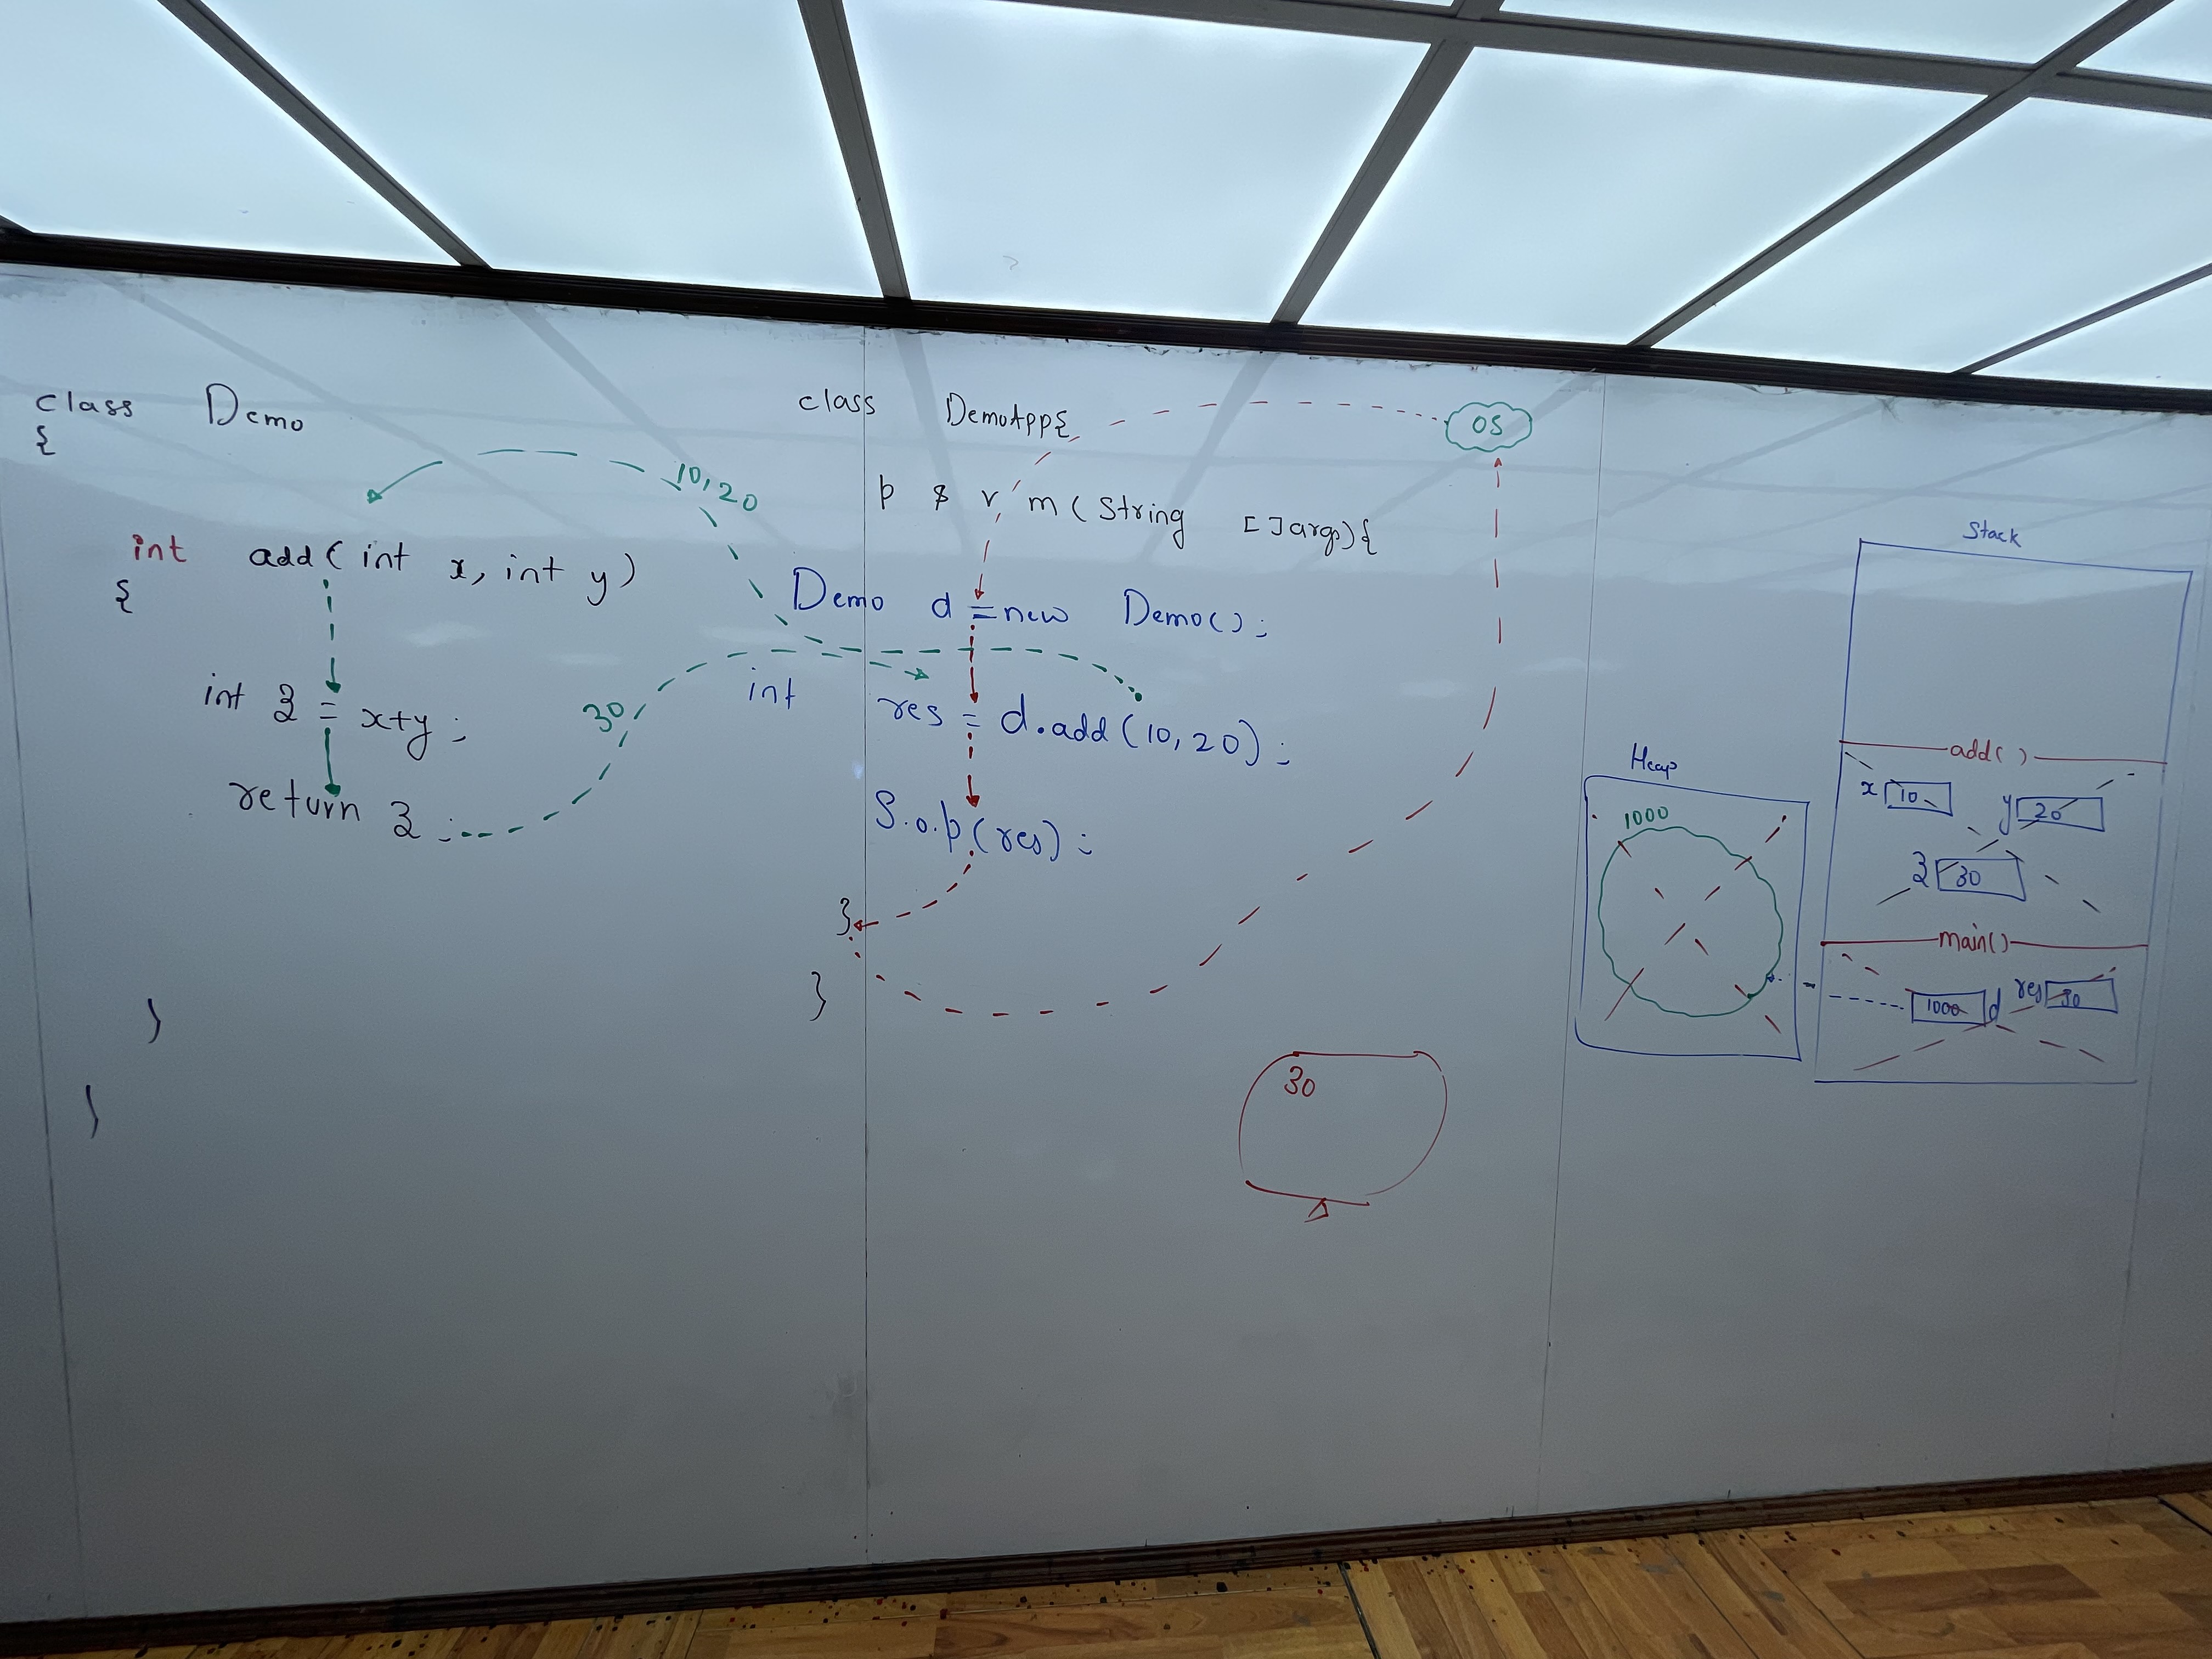 class Demo
{
int add( int x, int y)
{
int z = x+y ;
return z ;
}
}
10, 20
30
class DemoApp{
p s v m ( String [ ] args){
Demo d = new Demo() ;
int res = d.add(10, 20) ;
S.o.p(res) ;
}
}
OS
30
Heap
1000
Stack
add( )
x 10
y 20
z 30
main()
1000 d
res 30